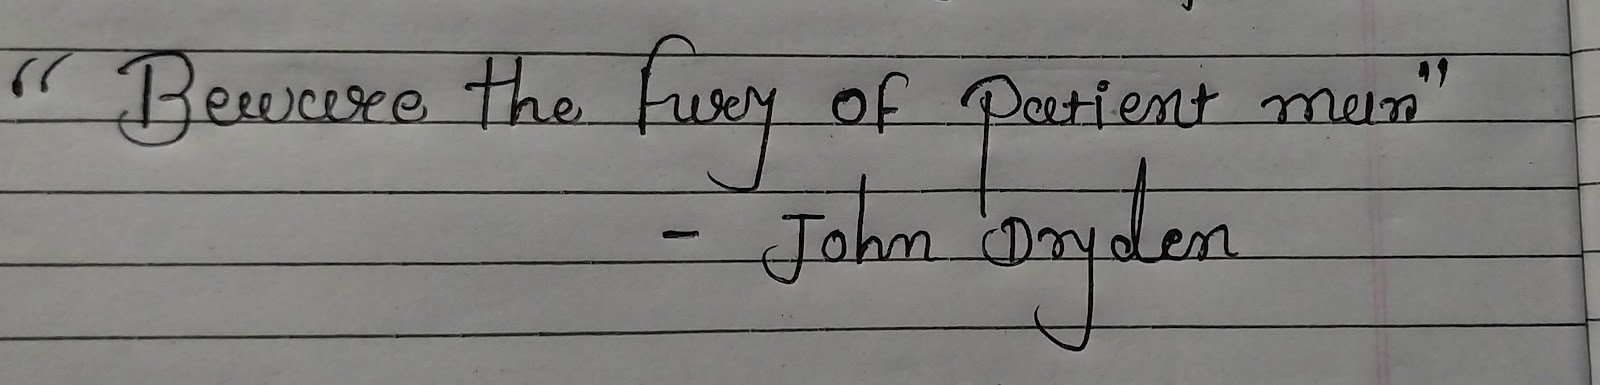 "Beware the fury of patient man"
- John Dryden